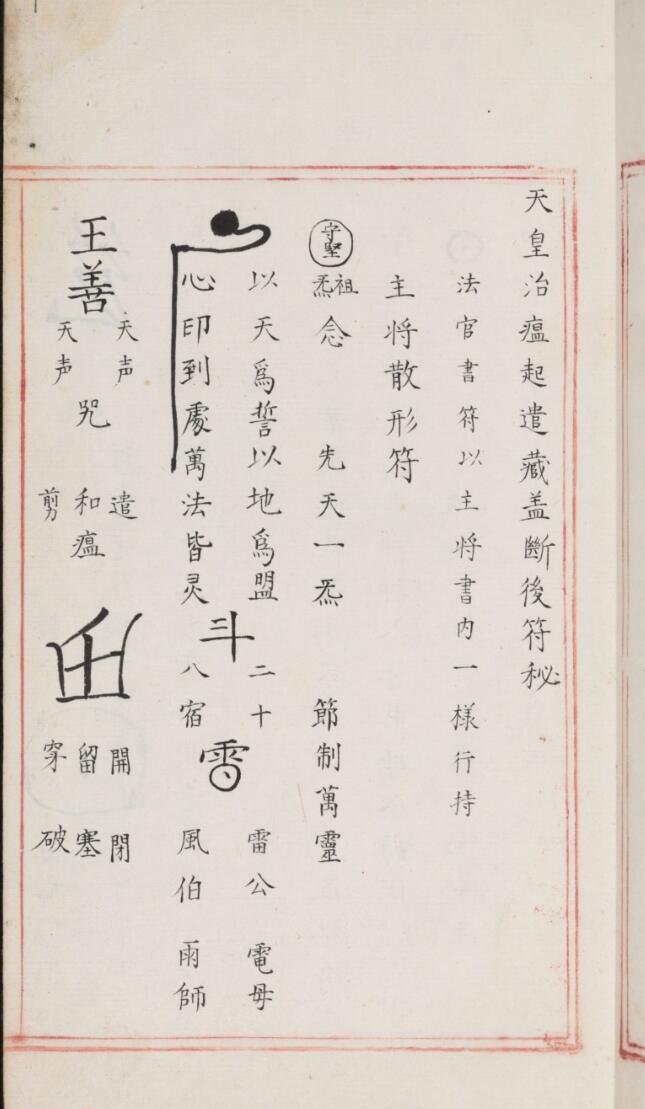 天皇治瘟起遣藏盖斷後符秘
法官書符以主將書内一樣行持
主將散形符
守堅 祖炁念 先天一炁 節制萬靈
以天爲誓以地爲盟 二十 雷公 電母
心印到處萬法皆灵 八宿 風伯 雨師
斗
天声 遣 開 閉
王善 咒 和瘟 留 塞
天声 剪 穿 破